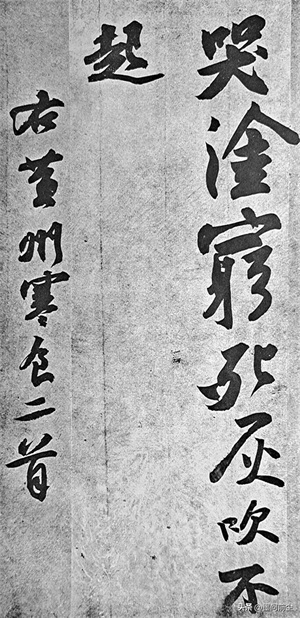 哭塗窮死灰吹不
起
右黃州寒食二首